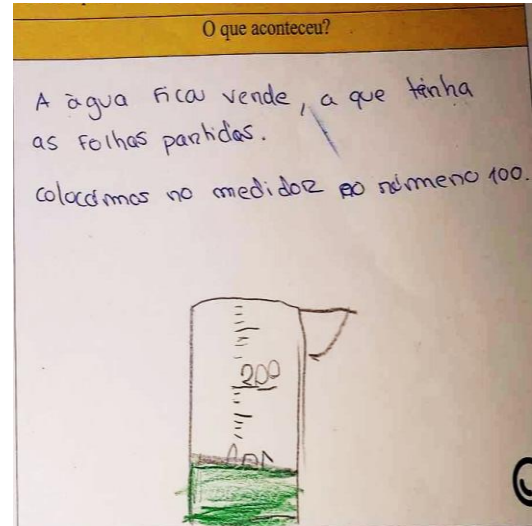 O que aconteceu?
A àgua ficou vende, a que tinha
as folhas pantidas.
colocámos no medidor no númeno 100.
200
100